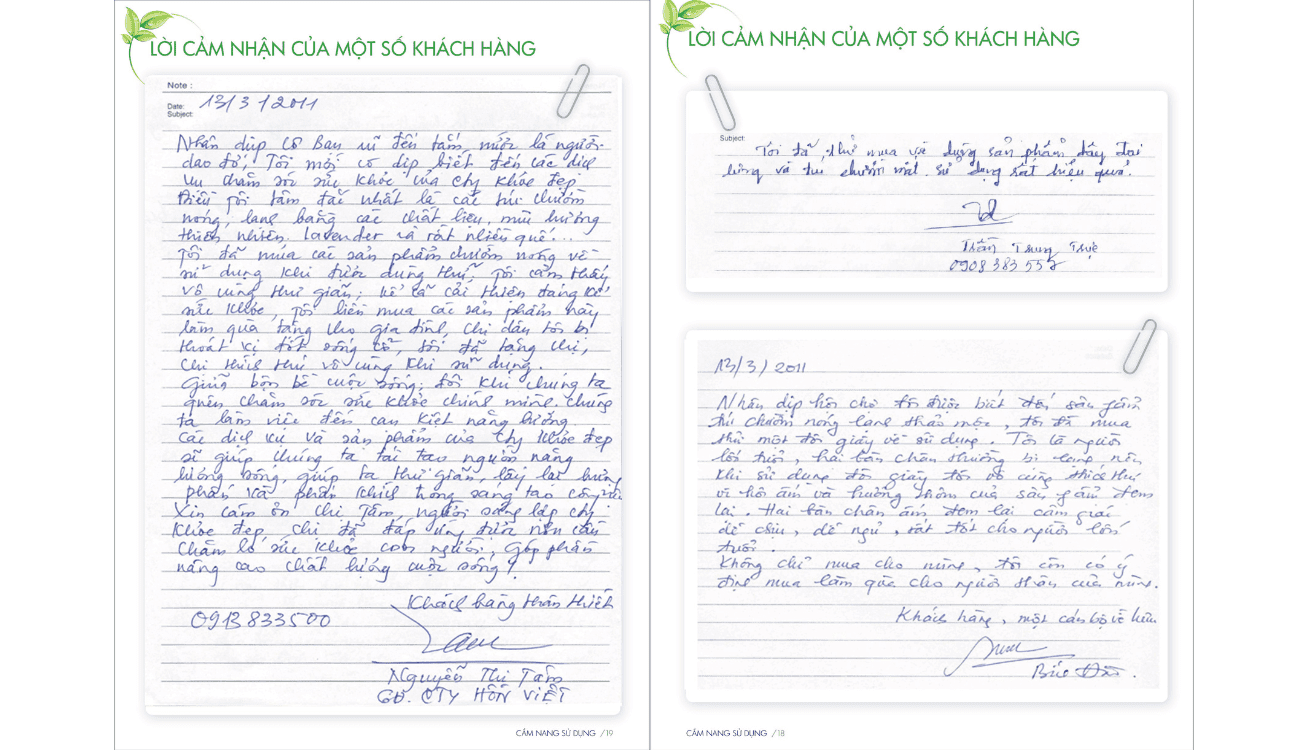 LỜI CẢM NHẬN CỦA MỘT SỐ KHÁCH HÀNG
Note :
Date: 13/3/2011
Subject:
Nhân dịp cô bạn đến tắm, mới là người
dao đỏ, Tôi mới có dịp biết đến các dịch
vụ chăm sóc sức khỏe của Cty Khỏe Đẹp
Điều tôi tâm đắc nhất là các túi chườm
nóng, lạnh bằng các chất liệu, mùi hương
thiên nhiên. Lavender và rất nhiều quế...
Tôi đã mua các sản phẩm chườm nóng về
sử dụng khi được dùng thử, tôi cảm thấy
vô cùng thư giãn, kể cả cải thiện đáng kể
sức khỏe, tôi liền mua các sản phẩm này
làm quà tặng cho gia đình, chị dâu tôi bị
thoát vị đốt sống cổ, tôi đã tặng chị,
chị thích thú vô cùng khi sử dụng.
Giữa bộn bề cuộc sống, đôi khi chúng ta
quên chăm sóc sức khỏe chính mình. Chúng
ta làm việc đến cạn kiệt năng lượng.
Các dịch vụ và sản phẩm của Cty Khỏe đẹp
sẽ giúp chúng ta tái tạo nguồn năng
lượng sống, giúp ta thư giãn, lấy lại hưng
phấn và phấn khích trong sáng tạo công việc
Xin cám ơn chị Tâm, người sáng lập cty
Khỏe đẹp, chị đã đáp ứng được nhu cầu
chăm lo sức khỏe con người, góp phần
nâng cao chất lượng cuộc sống!
Khách hàng thân thiết
0913 833500
Nguyễn Thị Tám
GĐ. CTY HỒN VIỆT
CẨM NANG SỬ DỤNG /19
LỜI CẢM NHẬN CỦA MỘT SỐ KHÁCH HÀNG
Subject:
Tôi đã thử mua về dụng sản phẩm dây đai
lưng và túi chườm mắt. sử dụng rất hiệu quả.
Trần Trung Trực
0908 383 552
13/3/2011
Nhân dịp hội chợ tôi được biết đến sản phẩm
túi chườm nóng lạnh thảo mộc, tôi đã mua
thử một đôi giầy về sử dụng. Tôi là người
lớn tuổi, hai bàn chân thường bị lạnh nên
khi sử dụng đôi giầy tôi vô cùng thích thú
vì hơi ấm và hương thơm của sản phẩm đem
lại. Hai bàn chân ấm đem lại cảm giác
dễ chịu, dễ ngủ, rất tốt cho người lớn
tuổi.
Không chỉ mua cho mình, tôi còn có ý
định mua làm quà cho người thân của mình.
Khách hàng, một cán bộ về hưu
CẨM NANG SỬ DỤNG /18